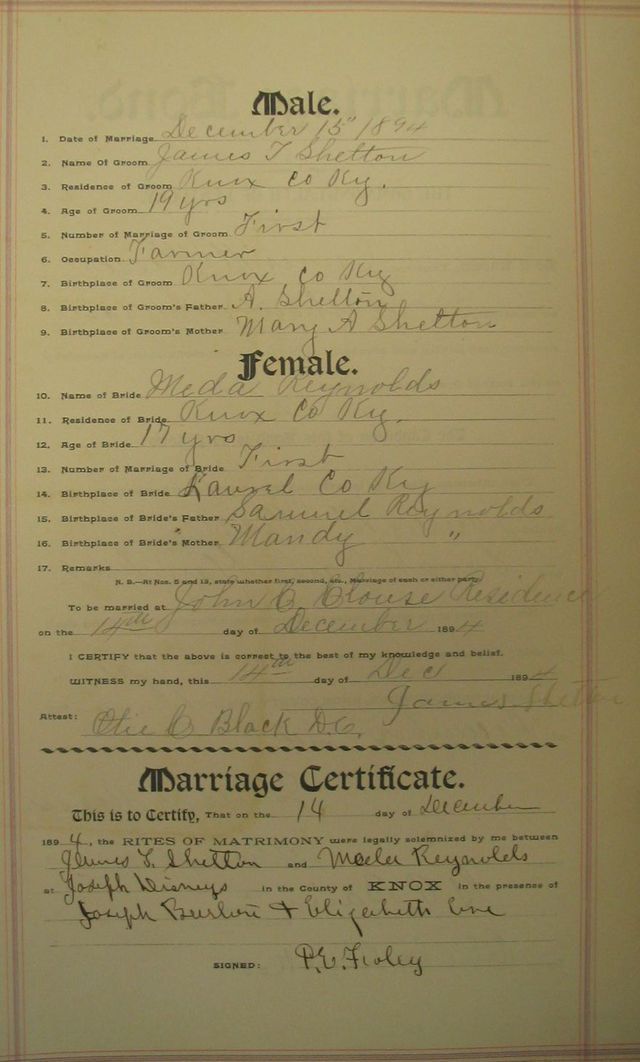 Male.
1. Date of Marriage December 15" 1894
2. Name Of Groom James T Shelton
3. Residence of Groom Knox Co Ky.
4. Age of Groom 19 yrs
5. Number of Marriage of Groom First
6. Occupation Farmer
7. Birthplace of Groom Knox Co Ky
8. Birthplace of Groom's Father A. Shelton
9. Birthplace of Groom's Mother Mary A Shelton
Female.
10. Name of Bride Meda Reynolds
11. Residence of Bride Knox Co Ky.
12. Age of Bride 17 yrs
13. Number of Marriage of Bride First
14. Birthplace of Bride Laurel Co Ky
15. Birthplace of Bride's Father Samuel Reynolds
16. Birthplace of Bride's Mother Mandy "
17. Remarks
N. B.—At Nos. 5 and 13, state whether first, second, etc., Marriage of each or either party.
To be married at John C Clouse Residence
on the 14th day of December 1894
I CERTIFY that the above is correct to the best of my knowledge and belief.
WITNESS my hand, this 14th day of Dec 1894
James Shelton
Attest: Otie C Black D.C.
Marriage Certificate.
This is to Certify, That on the 14 day of December
1894, the RITES OF MATRIMONY were legally solemnized by me between
James T. Shelton and Meda Reynolds
at Joseph Disneys in the County of KNOX in the presence of
Joseph & Elizabeth
SIGNED: P.E. Foley